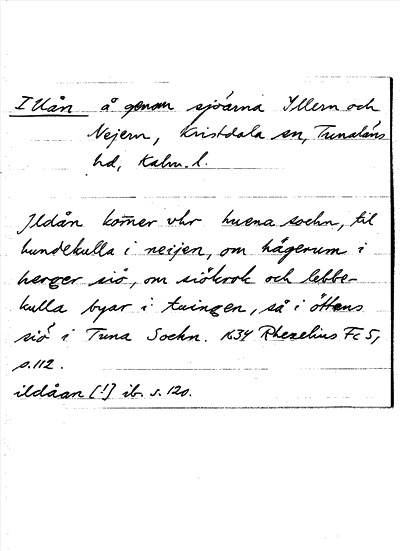 Illån å genom sjöarna Yllern och
Nejern, Kristdala sn, Tunaläns
hd, Kalm. l.
Ildån kom̄er vhr huena sochn, til
hundekulla i neijen, om hågerum i
herger siö, om siökrok och lebbe-
kulla byar i tuingen, så i öttens
siö i Tuna Sochn. 1634 Rhezelius Fc 5,
s. 112.
ildåan [!] ib. s. 120.